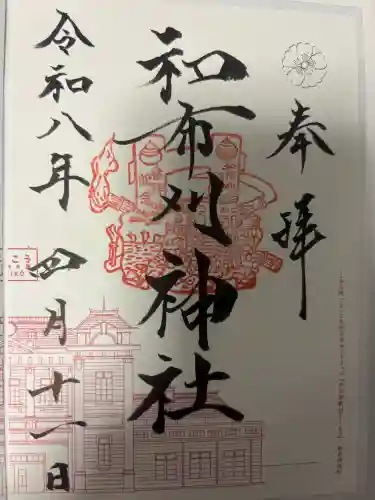 奉拝
和布刈神社
令和八年 四月十一日